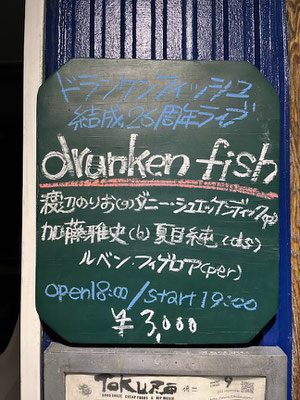 ドランクンフィッシュ
結成26周年ライブ
drunken fish
渡刀のりお(g)ダニー・シュエッケンディック(p)
加藤雅史(b) 夏目純(ds)
ルベン・フィゲロア(per)
open18:00/start 19:00
¥3,000
ToKuzo
9
GOOD MUSIC CHEAP FOODS & HIP MUSIC